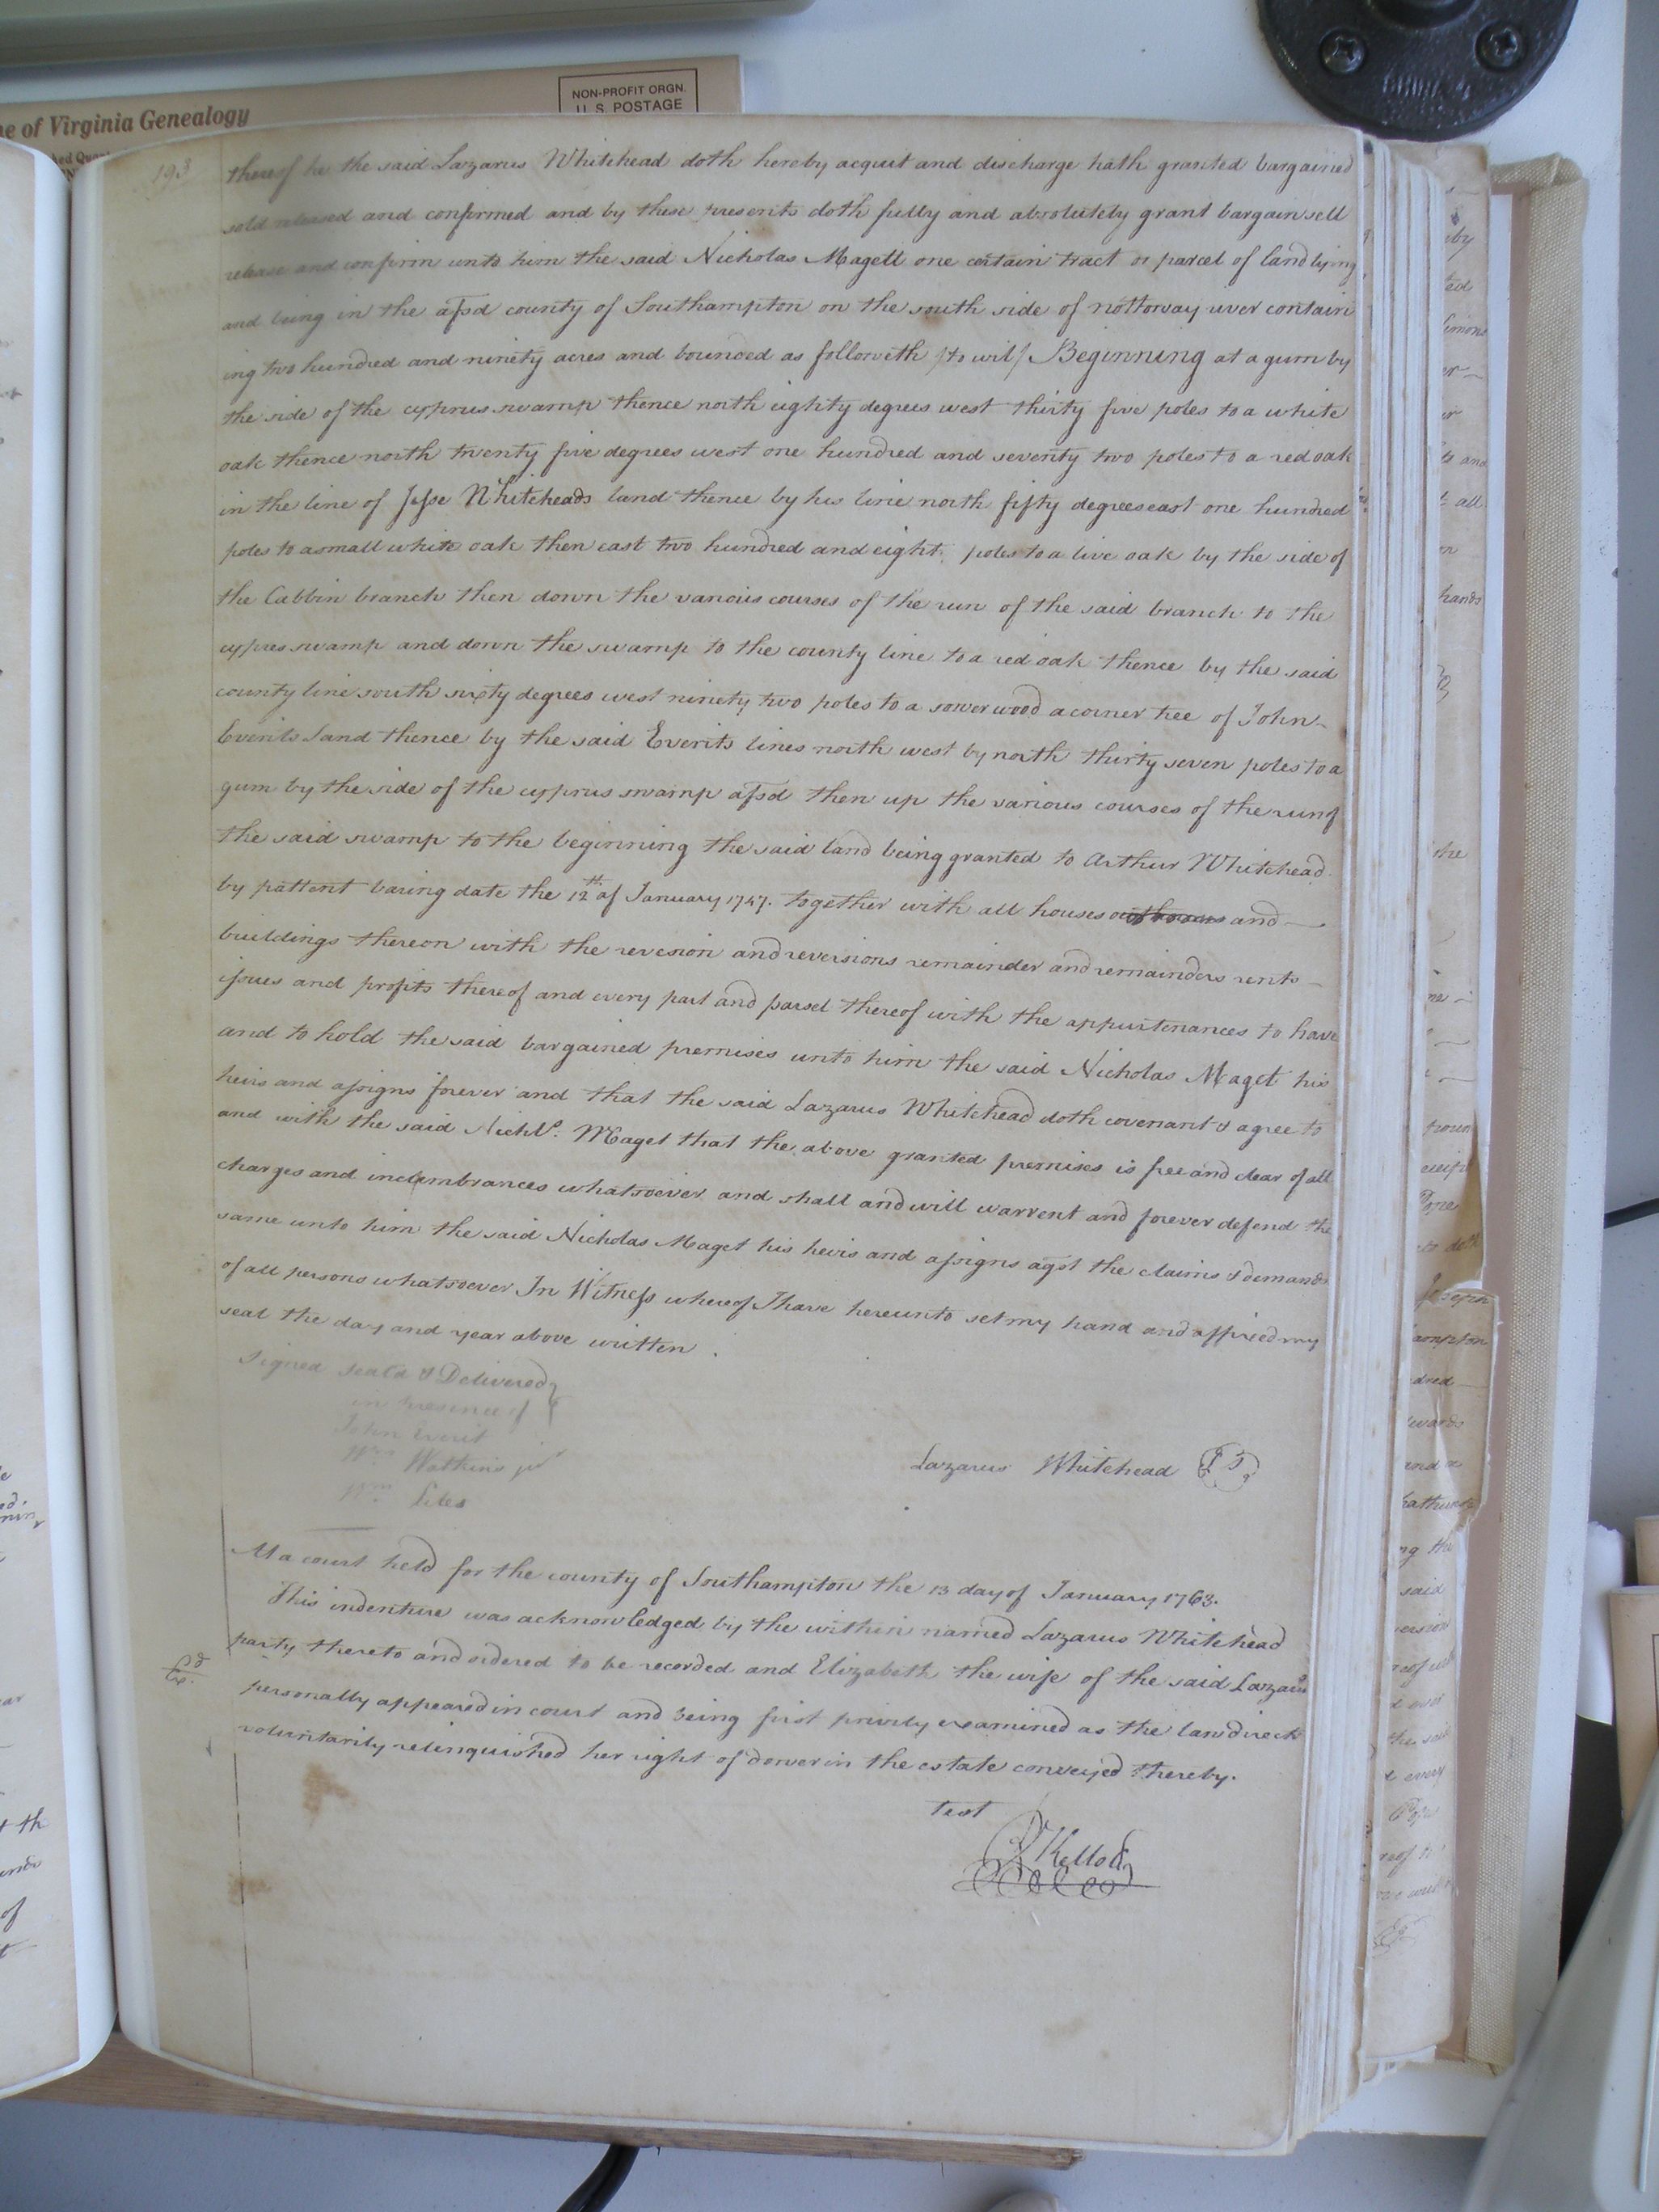 e of Virginia Genealogy
NON-PROFIT ORGN.
U. S. POSTAGE
193
thereof he the said Lazarus Whitehead doth hereby acquit and discharge hath granted bargained
sold released and confirmed and by these presents doth fully and absolutely grant bargain sell
release and confirm unto him the said Nicholas Magett one certain tract or parcel of land lying
and being in the afsd county of Southampton on the south side of nottoway river contain
ing two hundred and ninety acres and bounded as followeth /to wit/ Beginning at a gum by
the side of the cyprus swamp thence north eighty degrees west thirty five poles to a white
oak thence north twenty five degrees west one hundred and seventy two poles to a red oak
in the line of Jesse Whiteheads land thence by his line north fifty degrees east one hundred
poles to a small white oak then east two hundred and eight poles to a live oak by the side of
the Cabbin branch then down the various courses of the run of the said branch to the
cypres swamp and down the swamp to the county line to a red oak thence by the said
county line south sixty degrees west ninety two poles to a sowerwood a corner tree of John
Everits land thence by the said Everits lines north west by north thirty seven poles to a
gum by the side of the cyprus swamp afsd then up the various courses of the run of
the said swamp to the beginning the said land being granted to Arthur Whitehead
by pattent baring date the 12th of January 1747. together with all houses and
buildings thereon with the revesion and reversions remainder and remainders rents
issues and profits thereof and every part and parsel thereof with the appurtenances to have
and to hold the said bargained premises unto him the said Nicholas Maget his
heirs and assigns forever and that the said Lazarus Whitehead doth covenant & agree to
and with the said Nichls. Maget that the above granted premises is free and clear of all
charges and incumbrances whatsoever and shall and will warrent and forever defend the
same unto him the said Nicholas Maget his heirs and assigns agst the claims & demands
of all persons whatsoever In Witness whereof I have hereunto set my hand and affixed my
seal the day and year above written.
Signed seal'd & Delivered
in presence of
John Everit
Wm Watkins jur
Wm Liles
Lazarus Whitehead
At a court held for the county of Southampton the 13 day of January 1763.
This indenture was acknowledged by the within named Lazarus Whitehead
party thereto and ordered to be recorded and Elizabeth the wife of the said Lazarus
Ex.d
personally appeared in court and being first privily examined as the law directs
voluntarily relinquished her right of dower in the estate conveyed thereby.
Test
R Kello